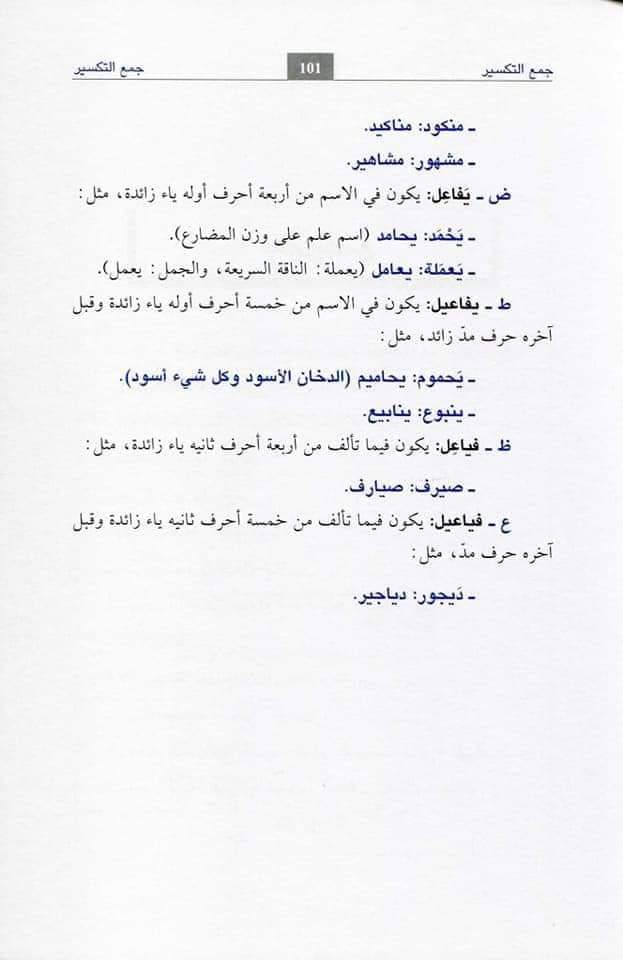 جمع التكسير 101 جمع التكسير
ـ منكود: مناكيد.
ـ مشهور: مشاهير.
ض ـ يَفاعِل: يكون في الاسم من أربعة أحرف أوله ياء زائدة، مثل:
ـ يَحْمَد: يحامد (اسم علم على وزن المضارع).
ـ يَعمَلة: يعامل (يعملة: الناقة السريعة، والجمل: يعمل).
ط ـ يفاعيل: يكون في الاسم من خمسة أحرف أوله ياء زائدة وقبل
آخره حرف مدّ زائد، مثل:
ـ يَحموم: يحاميم (الدخان الأسود وكل شيء أسود).
ـ ينبوع: ينابيع.
ظ ـ فياعِل: يكون فيما تألف من أربعة أحرف ثانيه ياء زائدة، مثل:
ـ صيرف: صيارف.
ع ـ فياعيل: يكون فيما تألف من خمسة أحرف ثانيه ياء زائدة وقبل
آخره حرف مدّ، مثل:
ـ دَيجور: دياجير.